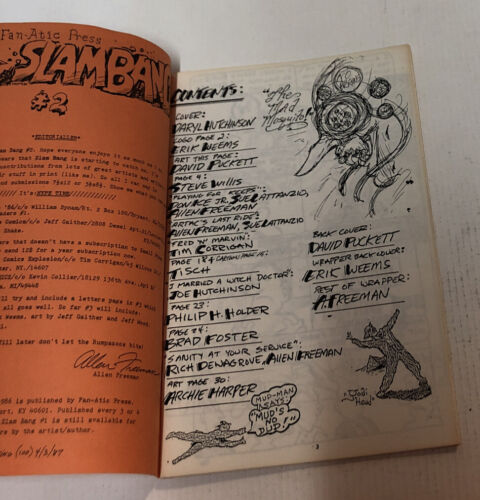 Fan-Atic Press
SLAM BANG
#2
*EDITORIALLEN*
Slam Bang #2. Hope everyone enjoys it as much as
ears that Slam Bang is starting to catch on.
contributions from lots of great artists and
ir stuff in print (like me). So all I can say is
nd submissions 7x10 or 8x9. Show us what
It's HYPE TIME
c/o William Dyson/Rt. 2 Box 190/Bryant,
aders #1.
Comics/c/o Jeff Gaither/2808 Deml
Shake.
ers that doesn't have a subscription to Small
send 12$ for a year subscription now.
Comics Explosion/c/o Tim Corrigan/
er, NY/14607
c/o Kevin Collier/18129 136th ave.
MI/49448
ll try and include a letters page in #3 which
all goes well. So far #3 will include:
art by Jeff Gaither and Jeff Wood.
ill later don't let the Rumpasos bite!
Allen Freeman
Allen Freeman
986 is published by Fan-Atic Press.
ort, KY 40601. Published every 3 or 4
SLAM Bang #1 is still available for
ers by the artist/author.
4/2/87
CONTENTS:
COVER:
DARYL HUTCHINSON
LOGO PAGE 2:
ERIK WEEMS
ART THIS PAGE:
DAVID PUCKETT
PAGE 4:
STEVE WILLIS
"PLAYING FOR KEEPS":
DON ICE JR, SUE LATTANZIO,
ALLEN FREEMAN
"ARTAC'S LAST RIDE:
ALLEN FREEMAN, SUE LATTANZIO
"FRED N' MARVIN:
TIM CORRIGAN
PAGE 18 &
TISCH
"I MARRIED A WITCH DOCTOR:
JOE HUTCHINSON
PAGE 23:
PHILIP H. HOLDER
PAGE 24:
BRAD FOSTER
"SANITY AT YOUR SERVICE":
RICH DENAGROVE, ALLEN FREEMAN
ART PAGE 30:
ARCHIE HARPER
"The Mad Mosquito!"
BACK COVER:
DAVID PUCKETT
WRAPPER BACK COVER:
ERIK WEEMS
REST OF WRAPPER:
A. FREEMAN
MUD-MAN
SAYS:
"MUD'S
NO
DUD!"
3